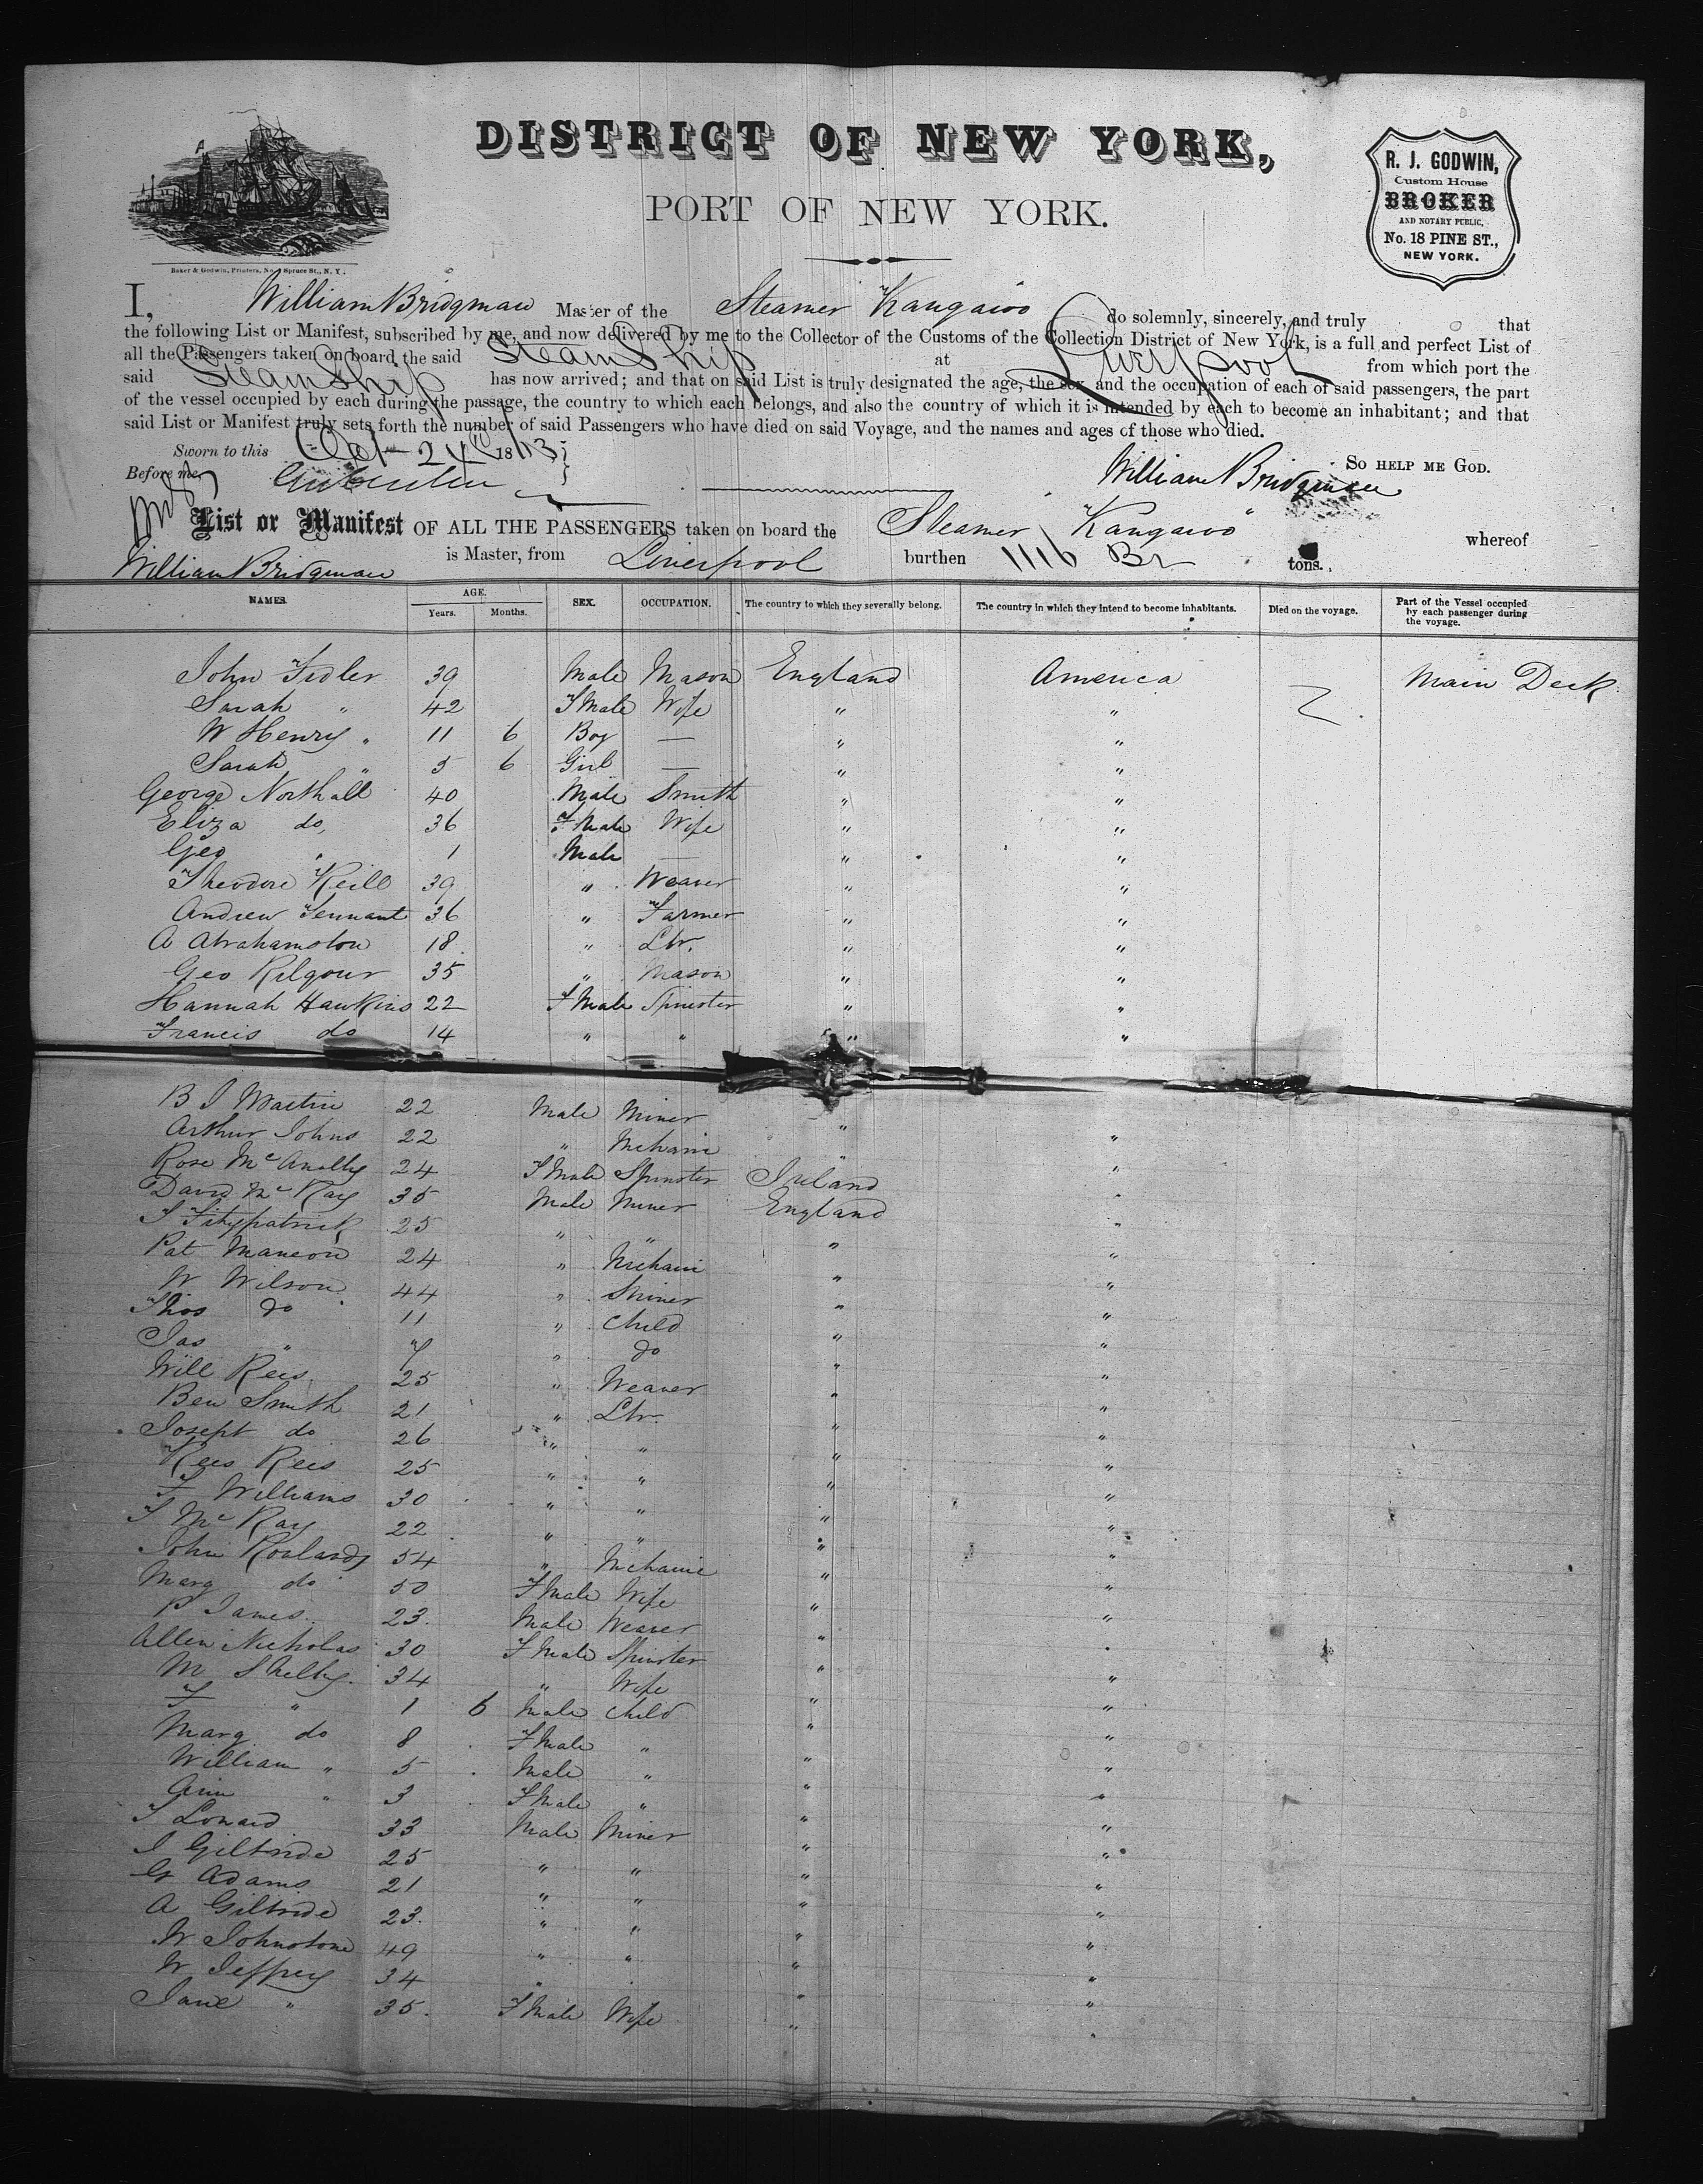 DISTRICT OF NEW YORK,
PORT OF NEW YORK.
R. J. GODWIN,
Custom House
BROKER
AND NOTARY PUBLIC,
No. 18 PINE ST.,
NEW YORK.
Baker & Godwin, Printers, No. 1 Spruce St., N. Y.
I, William Bridgman Master of the Steamer Kangaroo do solemnly, sincerely, and truly that
the following List or Manifest, subscribed by me, and now delivered by me to the Collector of the Customs of the Collection District of New York, is a full and perfect List of
all the Passengers taken on board the said Steam Ship at Liverpool from which port the
said Steam Ship has now arrived; and that on said List is truly designated the age, the sex, and the occupation of each of said passengers, the part
of the vessel occupied by each during the passage, the country to which each belongs, and also the country of which it is intended by each to become an inhabitant; and that
said List or Manifest truly sets forth the number of said Passengers who have died on said Voyage, and the names and ages of those who died.
Sworn to this Oct 24th 1873
So HELP ME GOD.
Before me,
William Bridgman
List or Manifest OF ALL THE PASSENGERS taken on board the Steamer "Kangaroo" whereof
William Bridgman is Master, from Liverpool burthen 1116 Br tons.
NAMES. AGE. Years. Months. SEX. OCCUPATION. The country to which they severally belong. The country in which they intend to become inhabitants. Died on the voyage. Part of the Vessel occupied by each passenger during the voyage.
John Fidler 39 Male Mason England America Main Deck
Sarah " 42 FMale Wife " "
W Henry " 11 6 Boy — " "
Sarah " 5 6 Girl — " "
George Northall 40 Male Smith " "
Eliza do, 36 FMale Wife " "
Geo " 1 Male — " "
Theodore Keill 39 " Weaver " "
Andrew Tennant 36 " Farmer " "
A Abrahamston 18 " Lbr. " "
Geo Kilgour 35 " Mason " "
Hannah Hawkins 22 FMale Spinster " "
Francis do 14 " " " "
B J Martin 22 Male Miner " "
Arthur Johns 22 " Mchanic " "
Rose McAnally 24 FMale Spinster Ireland "
David McKay 35 Male Miner England "
T Fitzpatrick 25 " " " "
Pat Maneon 24 " Mchanic " "
W Wilson 44 " Miner " "
Thos do 11 " Child " "
Jas " 7 " do " "
Will Rees 25 " Weaver " "
Ben Smith 21 " Lbr. " "
Joseph do 26 " " " "
Rees Rees 25 " " " "
F Williams 30 " " " "
T McKay 22 " " " "
John Rowlands 54 " Mchanic " "
Marg do 50 FMale Wife " "
P James 23 Male Weaver " "
Allen Nicholas 30 FMale Spinster " "
M Shelby 34 " Wife " "
F " 1 6 Male Child " "
Marg do 8 FMale " " "
William " 5 Male " " "
Ann " 3 FMale " " "
T Lonard 33 Male Miner " "
J Giltride 25 " " " "
G Adams 21 " " " "
A Giltride 23 " " " "
W Johnstone 49 " " " "
W Jeffrey 34 " " " "
Jane " 35 FMale Wife " "